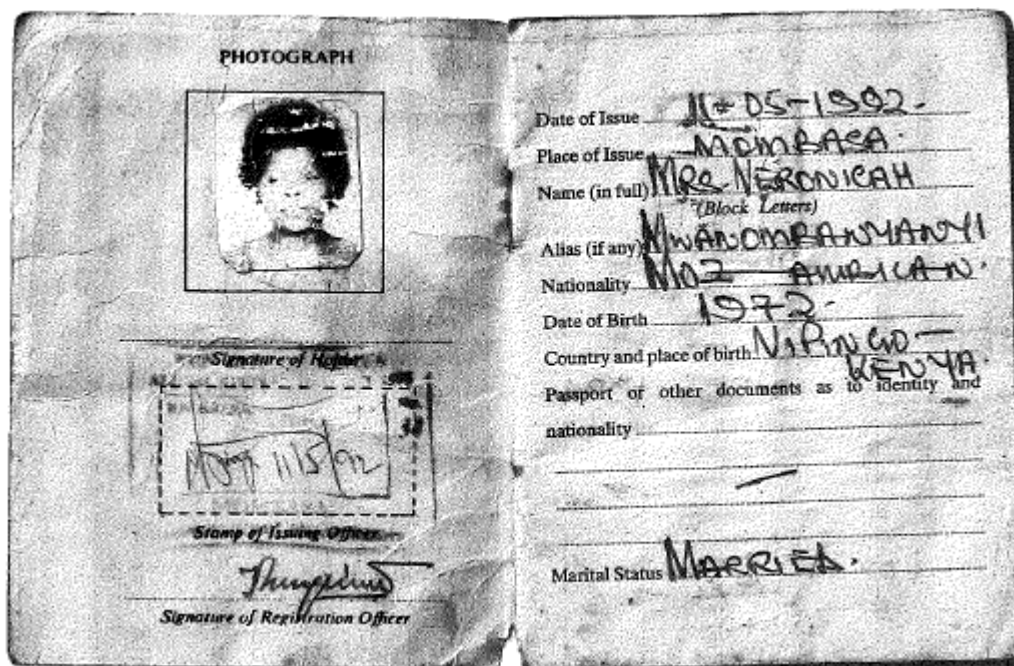 PHOTOGRAPH
Signature of Holder
11/5/92
Stamp of Issuing Officer
Signature of Registration Officer
Date of Issue 11-05-1992.
Place of Issue MOMBASA.
Name (in full) MRS. VERONICAH
(Block Letters)
Alias (if any) MWANOMBANYANYI
Nationality MOZ-AMBRICAN.
Date of Birth 1972.
Country and place of birth VIPINGO-
KENYA.
Passport or other documents as to identity and
nationality
Marital Status MARRIED.